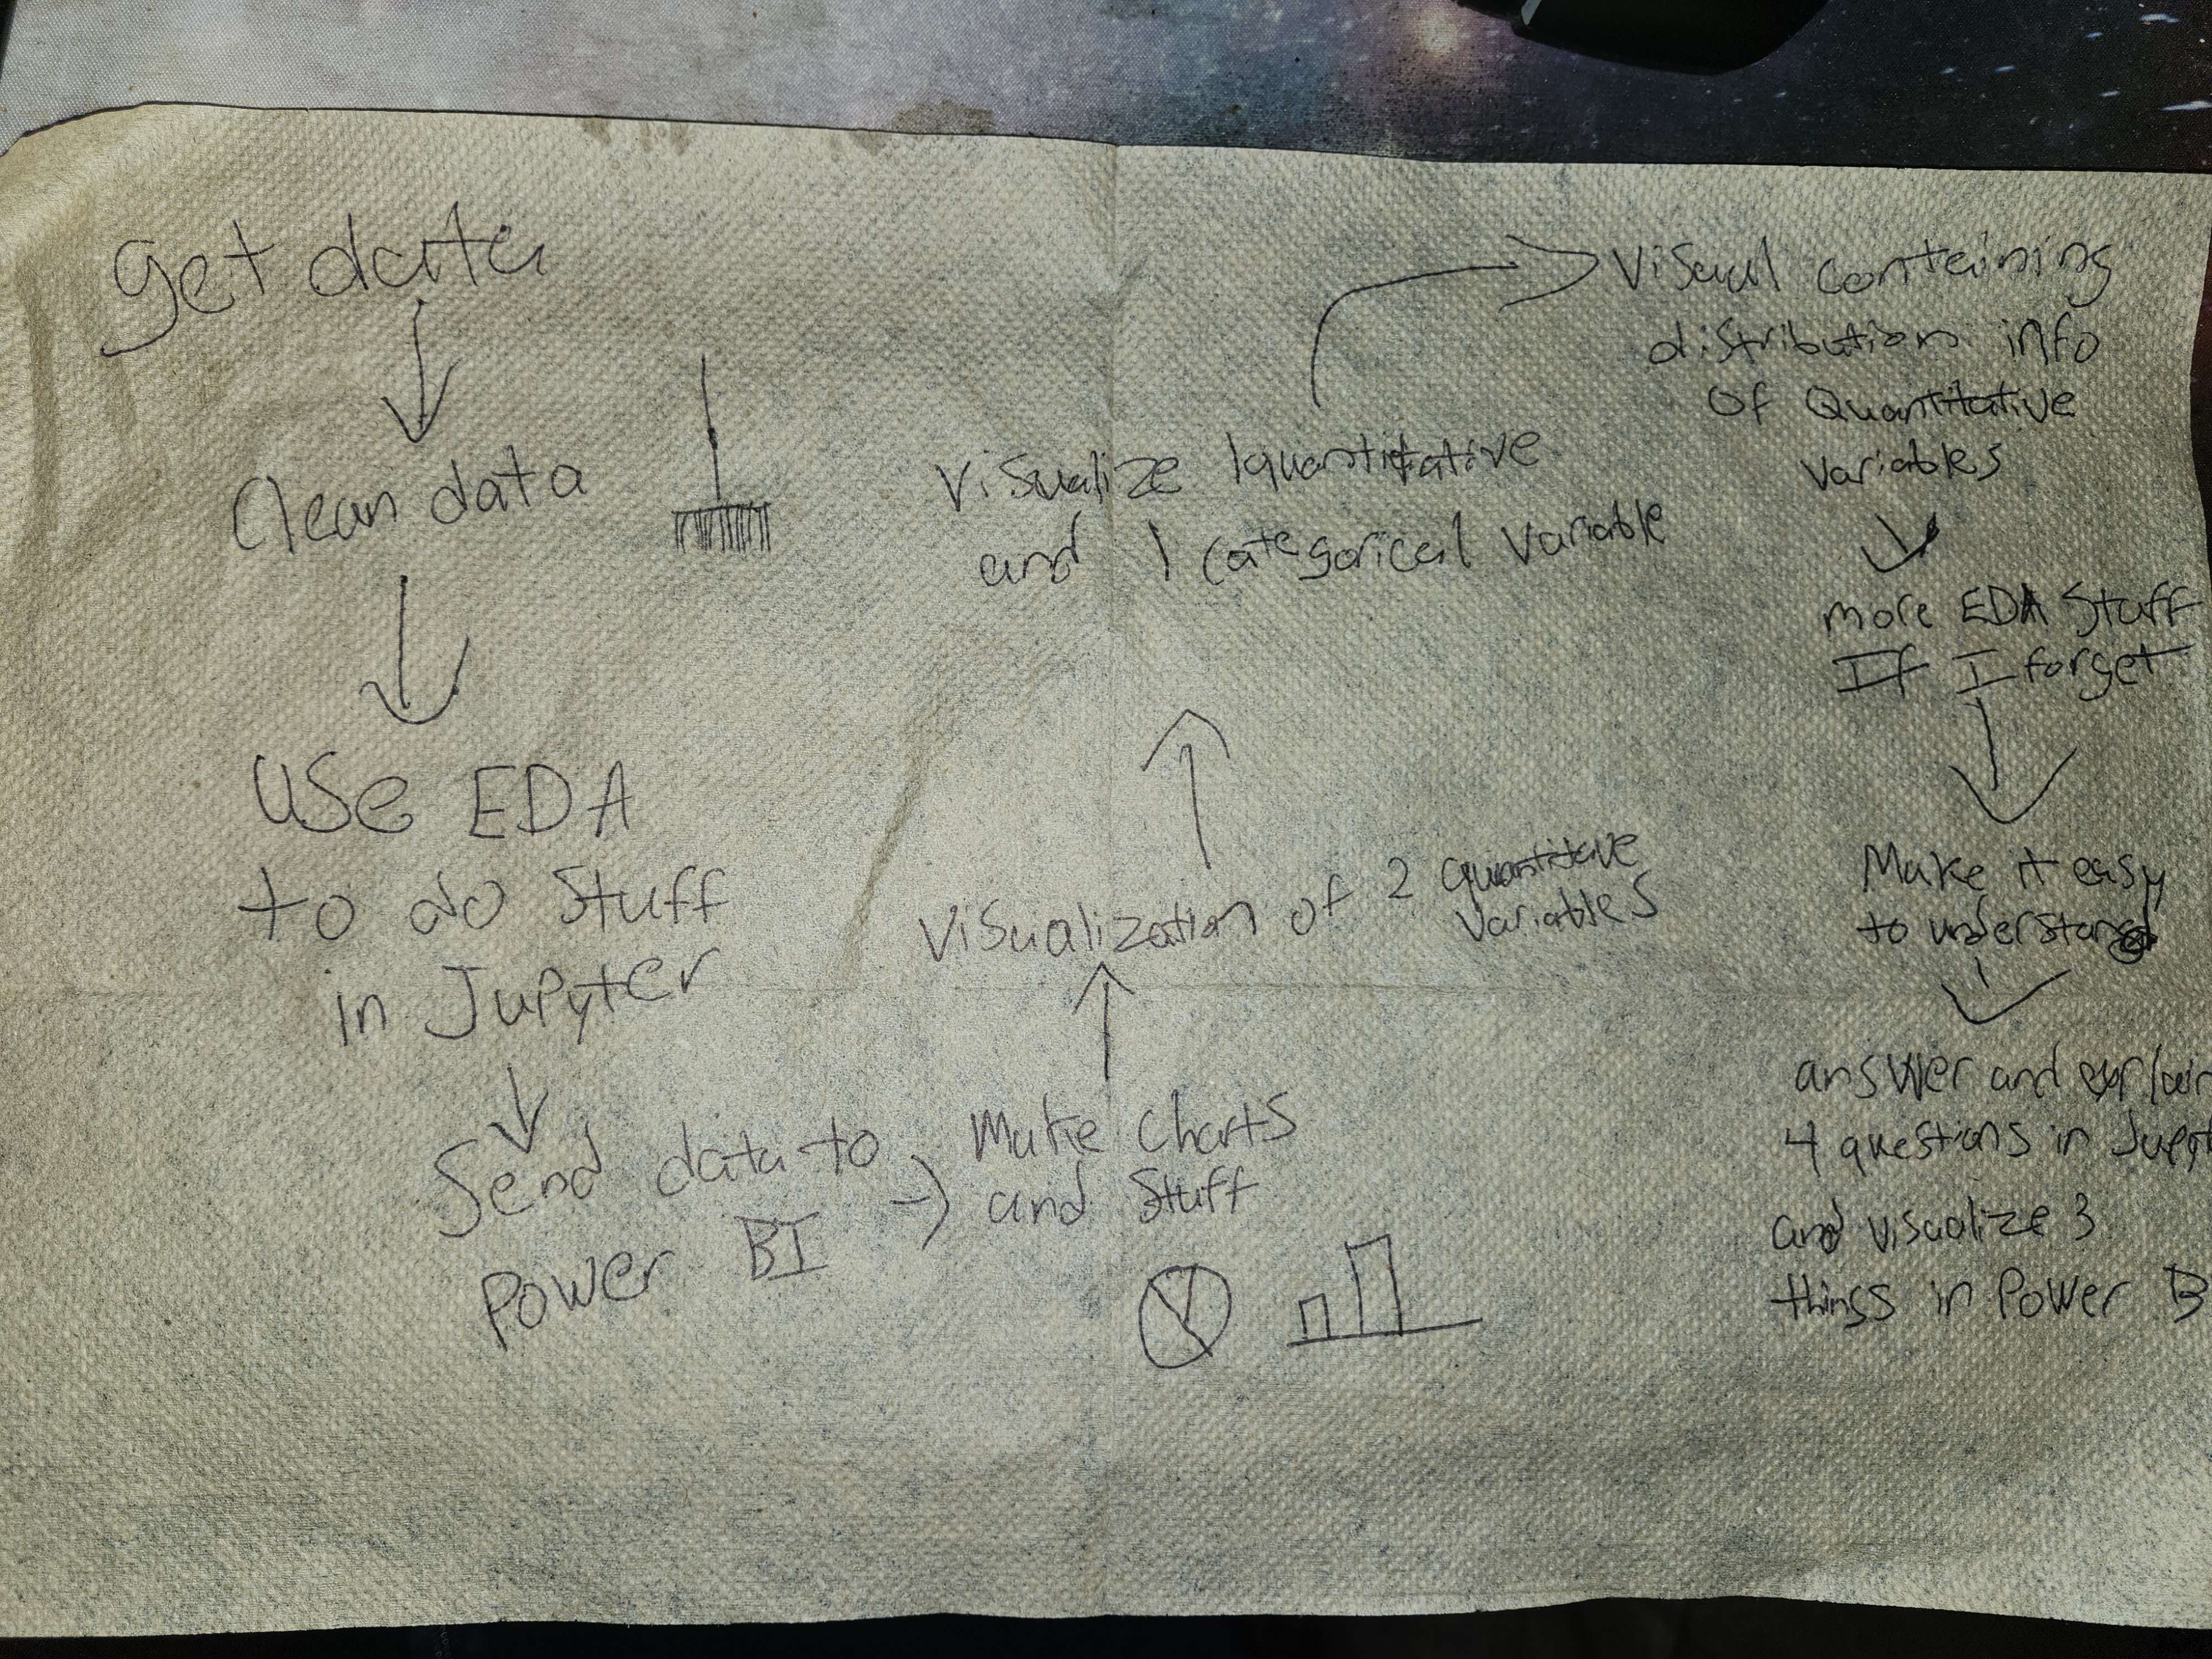 get data
Clean data
Use EDA
to do stuff
in Jupyter
Send data to
Power BI
Make Charts
and Stuff
Visualization of 2 quantitative
variables
Visualize 1 quantitative
and 1 categorical variable
Visual containing
distribution info
Of Quantitative
Variables
more EDA Stuff
If I forget
Make it easy
to understand
answer and explain
4 questions in Jupyt
and visualize 3
things in Power B